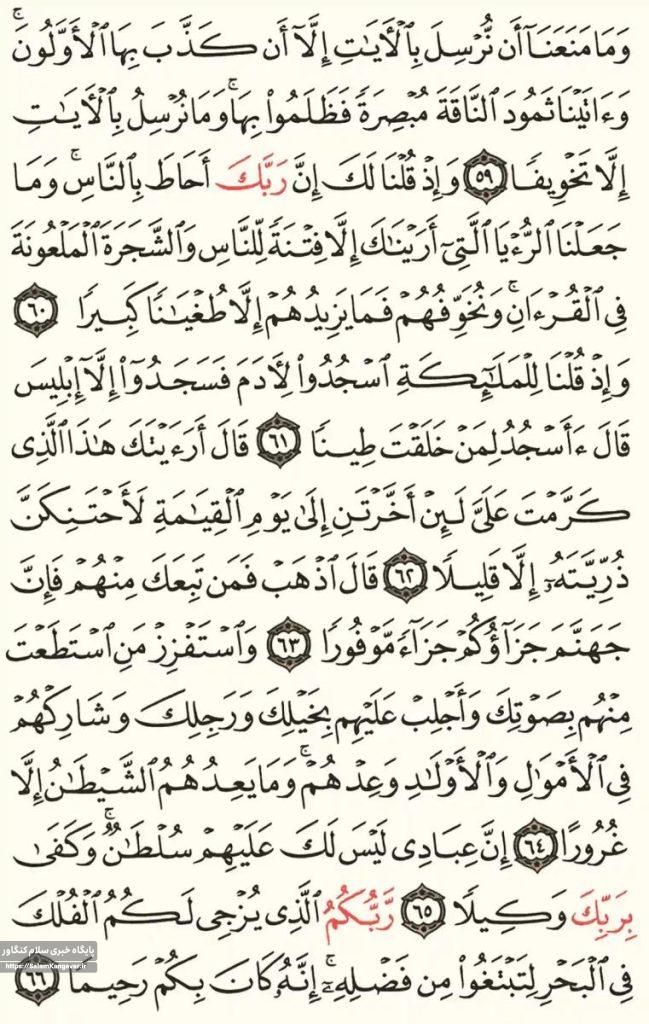 وَمَا مَنَعَنَآ أَن نُّرْسِلَ بِٱلْأَيَـٰتِ إِلَّآ أَن كَذَّبَ بِهَا ٱلْأَوَّلُونَ ۚ
وَءَاتَيْنَا ثَمُودَ ٱلنَّاقَةَ مُبْصِرَةً فَظَلَمُوا۟ بِهَا ۚ وَمَا نُرْسِلُ بِٱلْأَيَـٰتِ
إِلَّا تَخْوِيفًا ٥٩ وَإِذْ قُلْنَا لَكَ إِنَّ رَبَّكَ أَحَاطَ بِٱلنَّاسِ ۚ وَمَا
جَعَلْنَا ٱلرُّءْيَا ٱلَّتِىٓ أَرَيْنَـٰكَ إِلَّا فِتْنَةً لِّلنَّاسِ وَٱلشَّجَرَةَ ٱلْمَلْعُونَةَ
فِى ٱلْقُرْءَانِ ۚ وَنُخَوِّفُهُمْ فَمَا يَزِيدُهُمْ إِلَّا طُغْيَـٰنًا كَبِيرًا ٦٠
وَإِذْ قُلْنَا لِلْمَلَـٰٓئِكَةِ ٱسْجُدُوا۟ لِأَدَمَ فَسَجَدُوٓا۟ إِلَّآ إِبْلِيسَ
قَالَ ءَأَسْجُدُ لِمَنْ خَلَقْتَ طِينًا ٦١ قَالَ أَرَءَيْتَكَ هَـٰذَا ٱلَّذِى
كَرَّمْتَ عَلَىَّ لَئِنْ أَخَّرْتَنِ إِلَىٰ يَوْمِ ٱلْقِيَـٰمَةِ لَأَحْتَنِكَنَّ
ذُرِّيَّتَهُۥٓ إِلَّا قَلِيلًا ٦٢ قَالَ ٱذْهَبْ فَمَن تَبِعَكَ مِنْهُمْ فَإِنَّ
جَهَنَّمَ جَزَآؤُكُمْ جَزَآءً مَّوْفُورًا ٦٣ وَٱسْتَفْزِزْ مَنِ ٱسْتَطَعْتَ
مِنْهُم بِصَوْتِكَ وَأَجْلِبْ عَلَيْهِم بِخَيْلِكَ وَرَجِلِكَ وَشَارِكْهُمْ
فِى ٱلْأَمْوَٰلِ وَٱلْأَوْلَـٰدِ وَعِدْهُمْ ۚ وَمَا يَعِدُهُمُ ٱلشَّيْطَـٰنُ إِلَّا
غُرُورًا ٦٤ إِنَّ عِبَادِى لَيْسَ لَكَ عَلَيْهِمْ سُلْطَـٰنٌ ۚ وَكَفَىٰ
بِرَبِّكَ وَكِيلًا ٦٥ رَّبُّكُمُ ٱلَّذِى يُزْجِى لَكُمُ ٱلْفُلْكَ
فِى ٱلْبَحْرِ لِتَبْتَغُوا۟ مِن فَضْلِهِۦٓ ۚ إِنَّهُۥ كَانَ بِكُمْ رَحِيمًا ٦٦
پایگاه خبری سلام کنگاور
https://SalamKangavar.ir